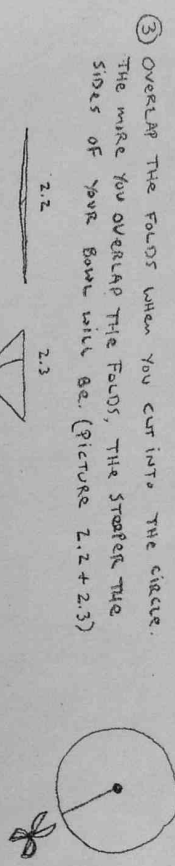 ③ OVERLAP THE FOLDS WHEN YOU CUT INTO THE CIRCLE.
THE MORE YOU OVERLAP THE FOLDS, THE STEEPER THE
SIDES OF YOUR BOWL WILL BE. (PICTURE 2.2 + 2.3)
2.2
2.3